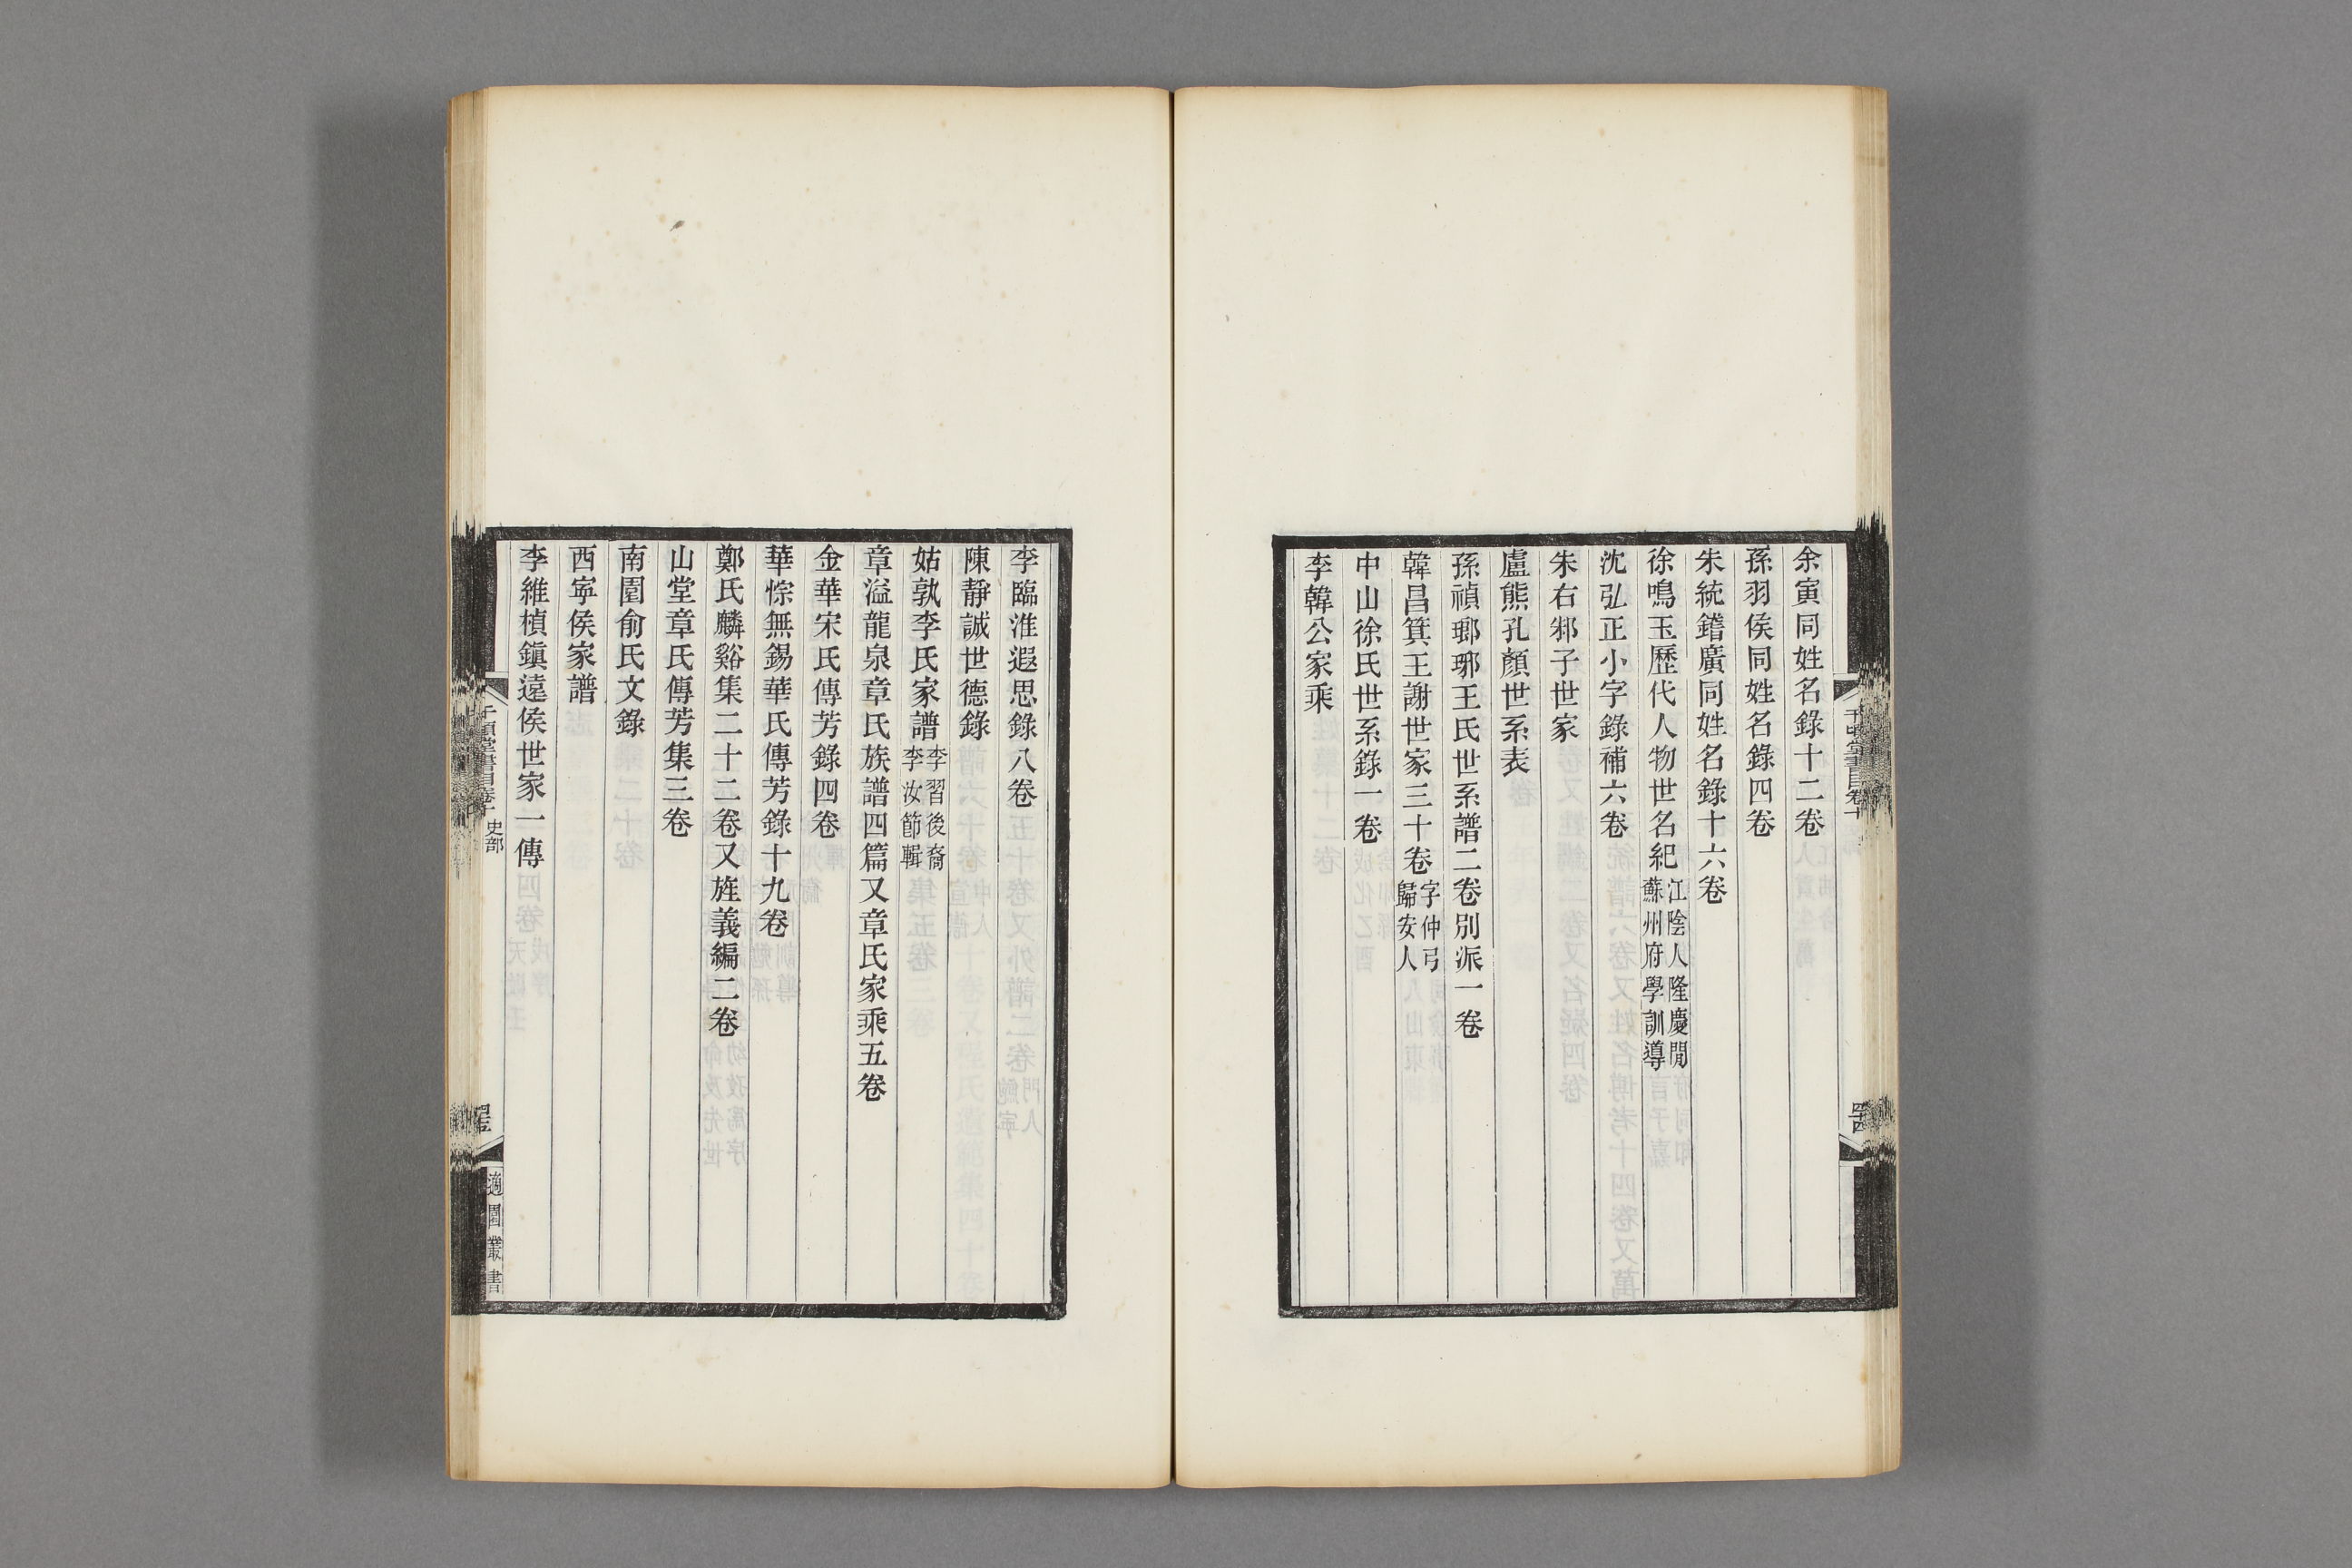 余寅同姓名錄十二卷
孫羽侯同姓名錄四卷
朱統𨰥廣同姓名錄十六卷
徐鳴玉歷代人物世名紀江陰人隆慶閒蘇州府學訓導
沈弘正小字錄補六卷
朱右邾子世家
盧熊孔顏世系表
孫禎瑯琊王氏世系譜二卷別派一卷
韓昌箕王謝世家三十卷字仲弓歸安人
中山徐氏世系錄一卷
李韓公家乘
李臨淮遐思錄八卷
陳靜誠世德錄
姑孰李氏家譜李習後裔李汝節輯
章溢龍泉章氏族譜四篇又章氏家乘五卷
金華宋氏傳芳錄四卷
華悰無錫華氏傳芳錄十九卷
鄭氏麟谿集二十二卷又旌義編二卷
山堂章氏傳芳集三卷
南園俞氏文錄
西寧侯家譜
李維楨鎮遠侯世家一傳
千頃堂書目卷十 史部
適園叢書